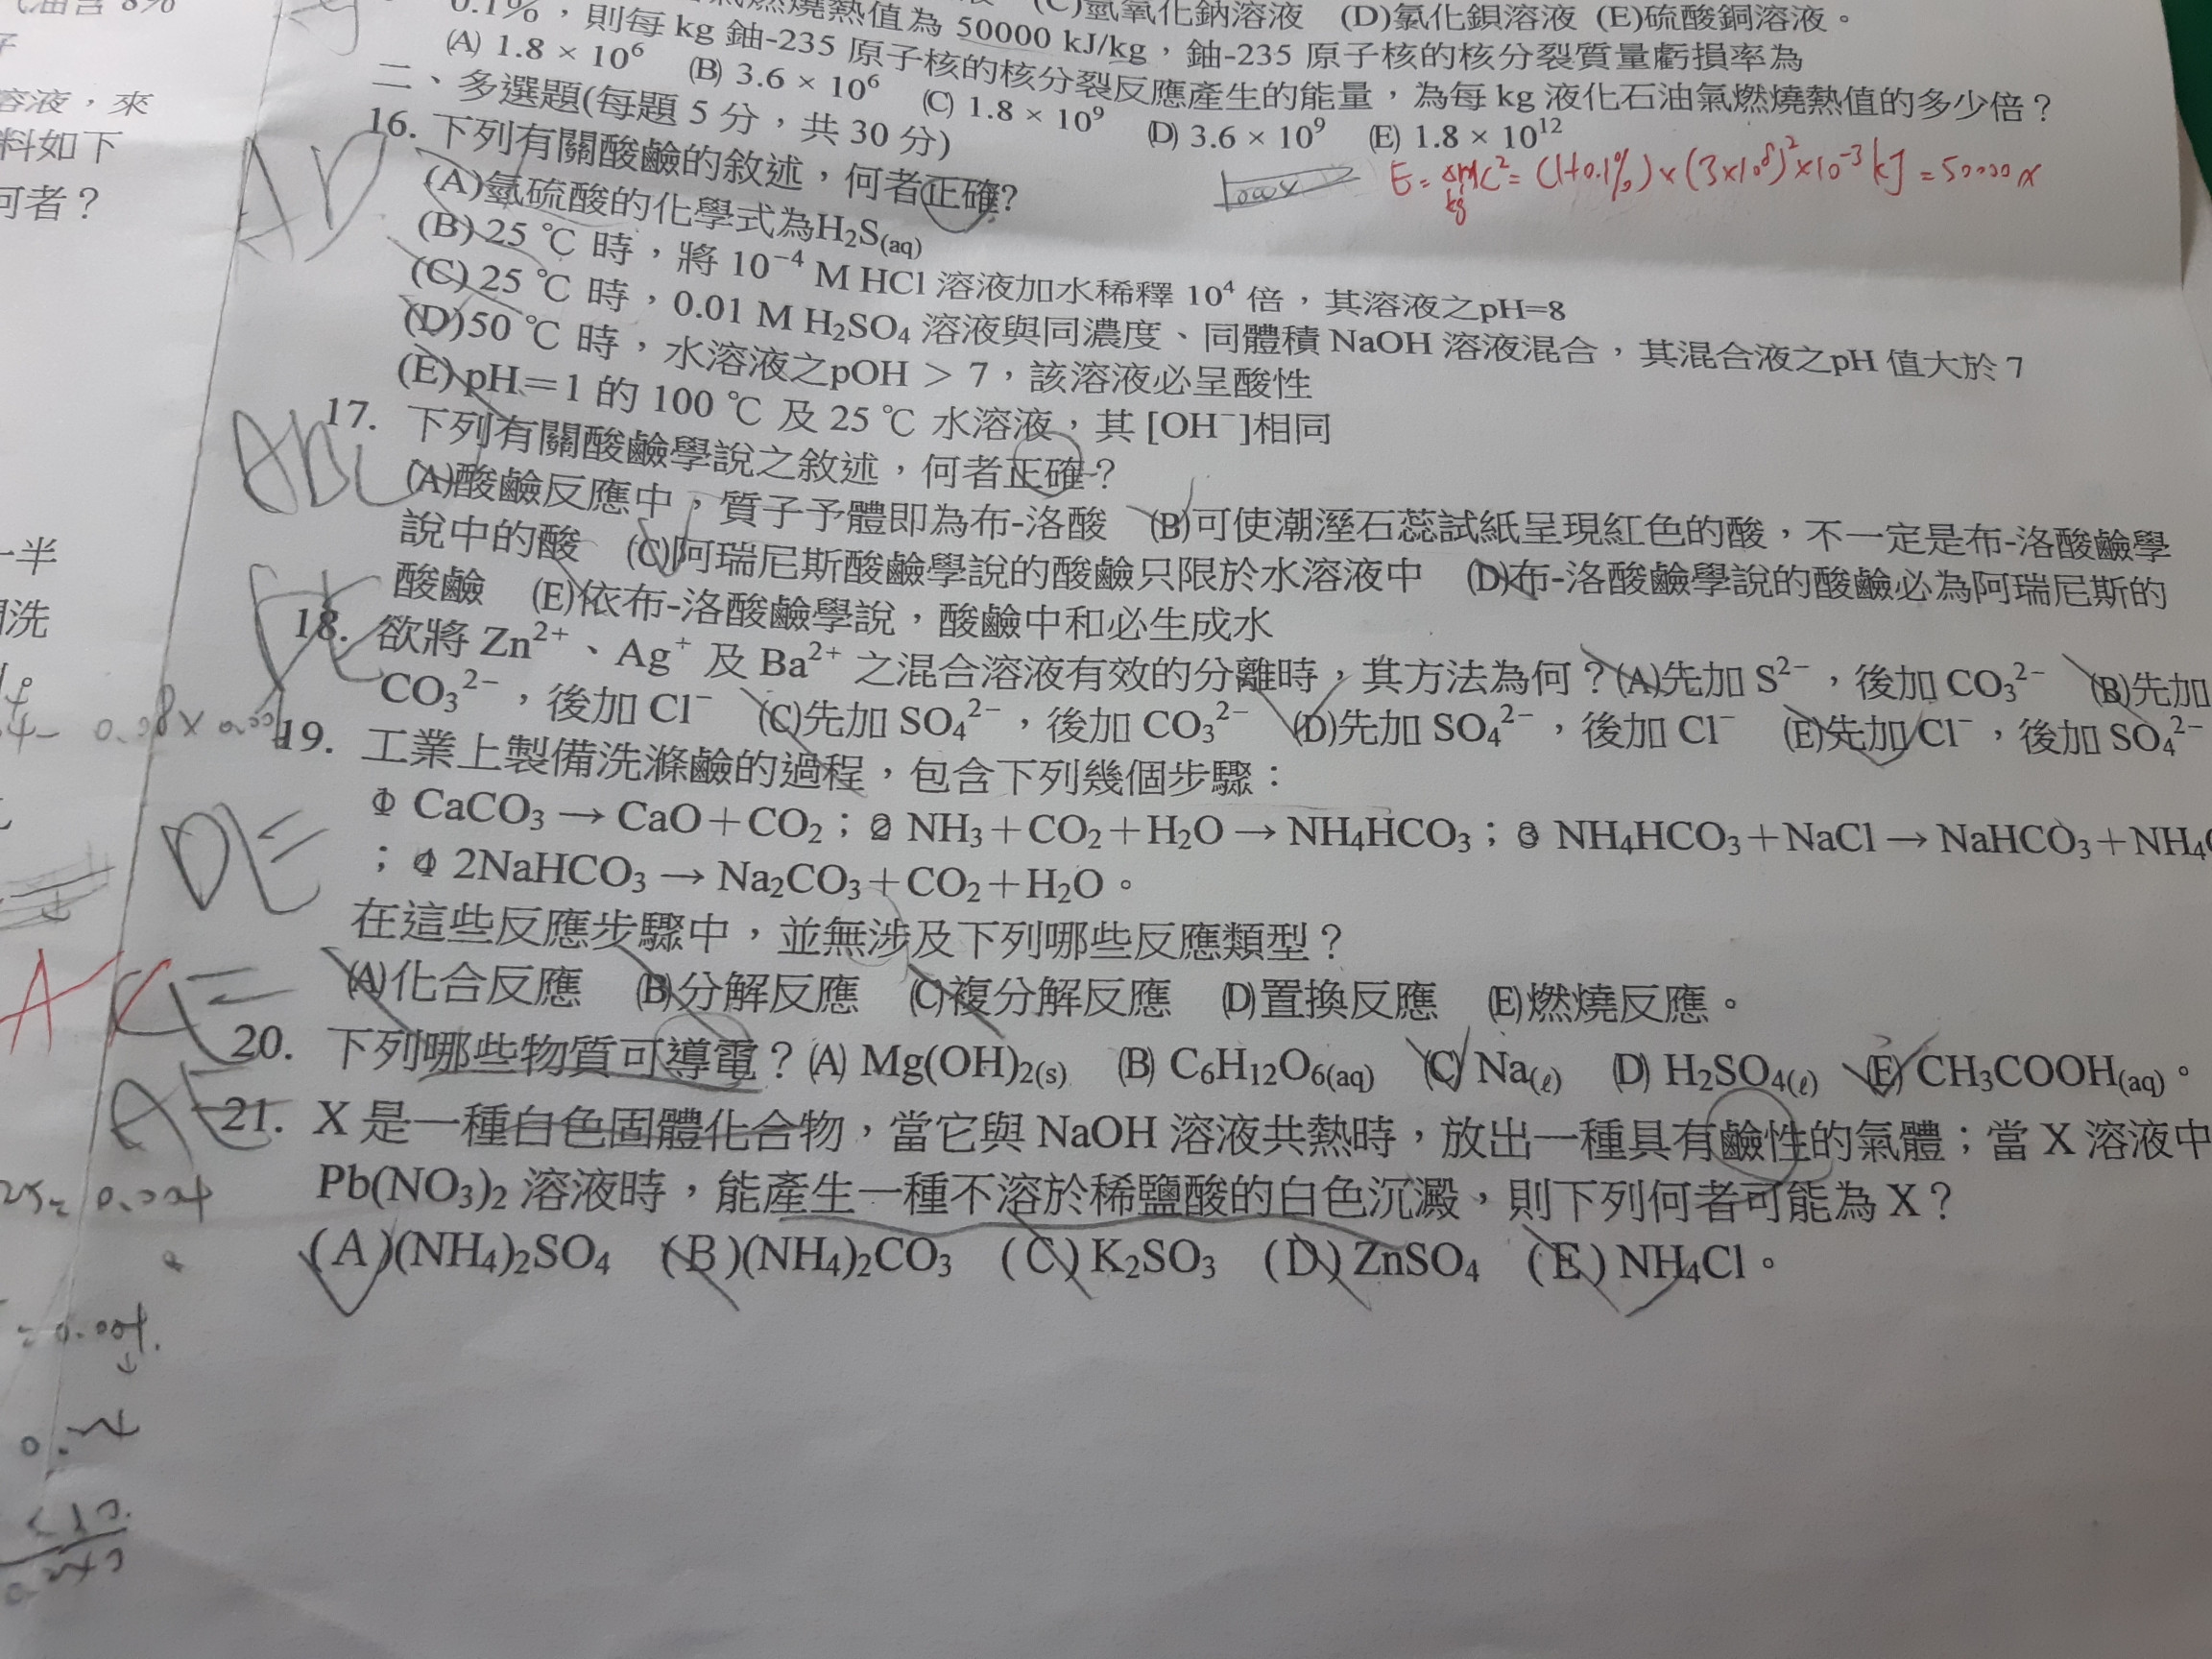 油含 8%
溶液，來
料如下
何者？
(C)氫氧化鈉溶液 (D)氯化鋇溶液 (E)硫酸銅溶液。
氣燃燒熱值為 50000 kJ/kg，鈾-235 原子核的核分裂質量虧損率為
0.1%，則每 kg 鈾-235 原子核的核分裂反應產生的能量，為每 kg 液化石油氣燃燒熱值的多少倍？
(A) 1.8 × 10⁶ (B) 3.6 × 10⁶ (C) 1.8 × 10⁹ (D) 3.6 × 10⁹ (E) 1.8 × 10¹²
二、多選題(每題 5 分，共 30 分)
16. 下列有關酸鹼的敘述，何者正確?
(A)氫硫酸的化學式為H₂S(aq)
(B) 25 ℃ 時，將 10⁻⁴ M HCl 溶液加水稀釋 10⁴ 倍，其溶液之pH=8
(C) 25 ℃ 時，0.01 M H₂SO₄ 溶液與同濃度、同體積 NaOH 溶液混合，其混合液之pH 值大於 7
(D)50 ℃ 時，水溶液之pOH > 7，該溶液必呈酸性
(E) pH＝1 的 100 ℃ 及 25 ℃ 水溶液，其 [OH⁻]相同
AD
17. 下列有關酸鹼學說之敘述，何者正確？
(A)酸鹼反應中，質子予體即為布-洛酸 (B)可使潮溼石蕊試紙呈現紅色的酸，不一定是布-洛酸鹼學
說中的酸 (C)阿瑞尼斯酸鹼學說的酸鹼只限於水溶液中 (D)布-洛酸鹼學說的酸鹼必為阿瑞尼斯的
酸鹼 (E)依布-洛酸鹼學說，酸鹼中和必生成水
ABC
18. 欲將 Zn²⁺、Ag⁺ 及 Ba²⁺ 之混合溶液有效的分離時，其方法為何？(A)先加 S²⁻，後加 CO₃²⁻ (B)先加
CO₃²⁻，後加 Cl⁻ (C)先加 SO₄²⁻，後加 CO₃²⁻ (D)先加 SO₄²⁻，後加 Cl⁻ (E)先加 Cl⁻，後加 SO₄²⁻
19. 工業上製備洗滌鹼的過程，包含下列幾個步驟：
① CaCO₃ → CaO＋CO₂；② NH₃＋CO₂＋H₂O → NH₄HCO₃；③ NH₄HCO₃＋NaCl → NaHCO₃＋NH₄
；④ 2NaHCO₃ → Na₂CO₃＋CO₂＋H₂O。
在這些反應步驟中，並無涉及下列哪些反應類型？
(A)化合反應 (B)分解反應 (C)複分解反應 (D)置換反應 (E)燃燒反應。
DE
20. 下列哪些物質可導電？(A) Mg(OH)₂(s) (B) C₆H₁₂O₆(aq) (C) Na(ℓ) (D) H₂SO₄(ℓ) (E) CH₃COOH(aq)。
CE
21. X 是一種白色固體化合物，當它與 NaOH 溶液共熱時，放出一種具有鹼性的氣體；當 X 溶液中
Pb(NO₃)₂ 溶液時，能產生一種不溶於稀鹽酸的白色沉澱，則下列何者可能為 X？
(A)(NH₄)₂SO₄ (B)(NH₄)₂CO₃ (C) K₂SO₃ (D) ZnSO₄ (E) NH₄Cl。
AE